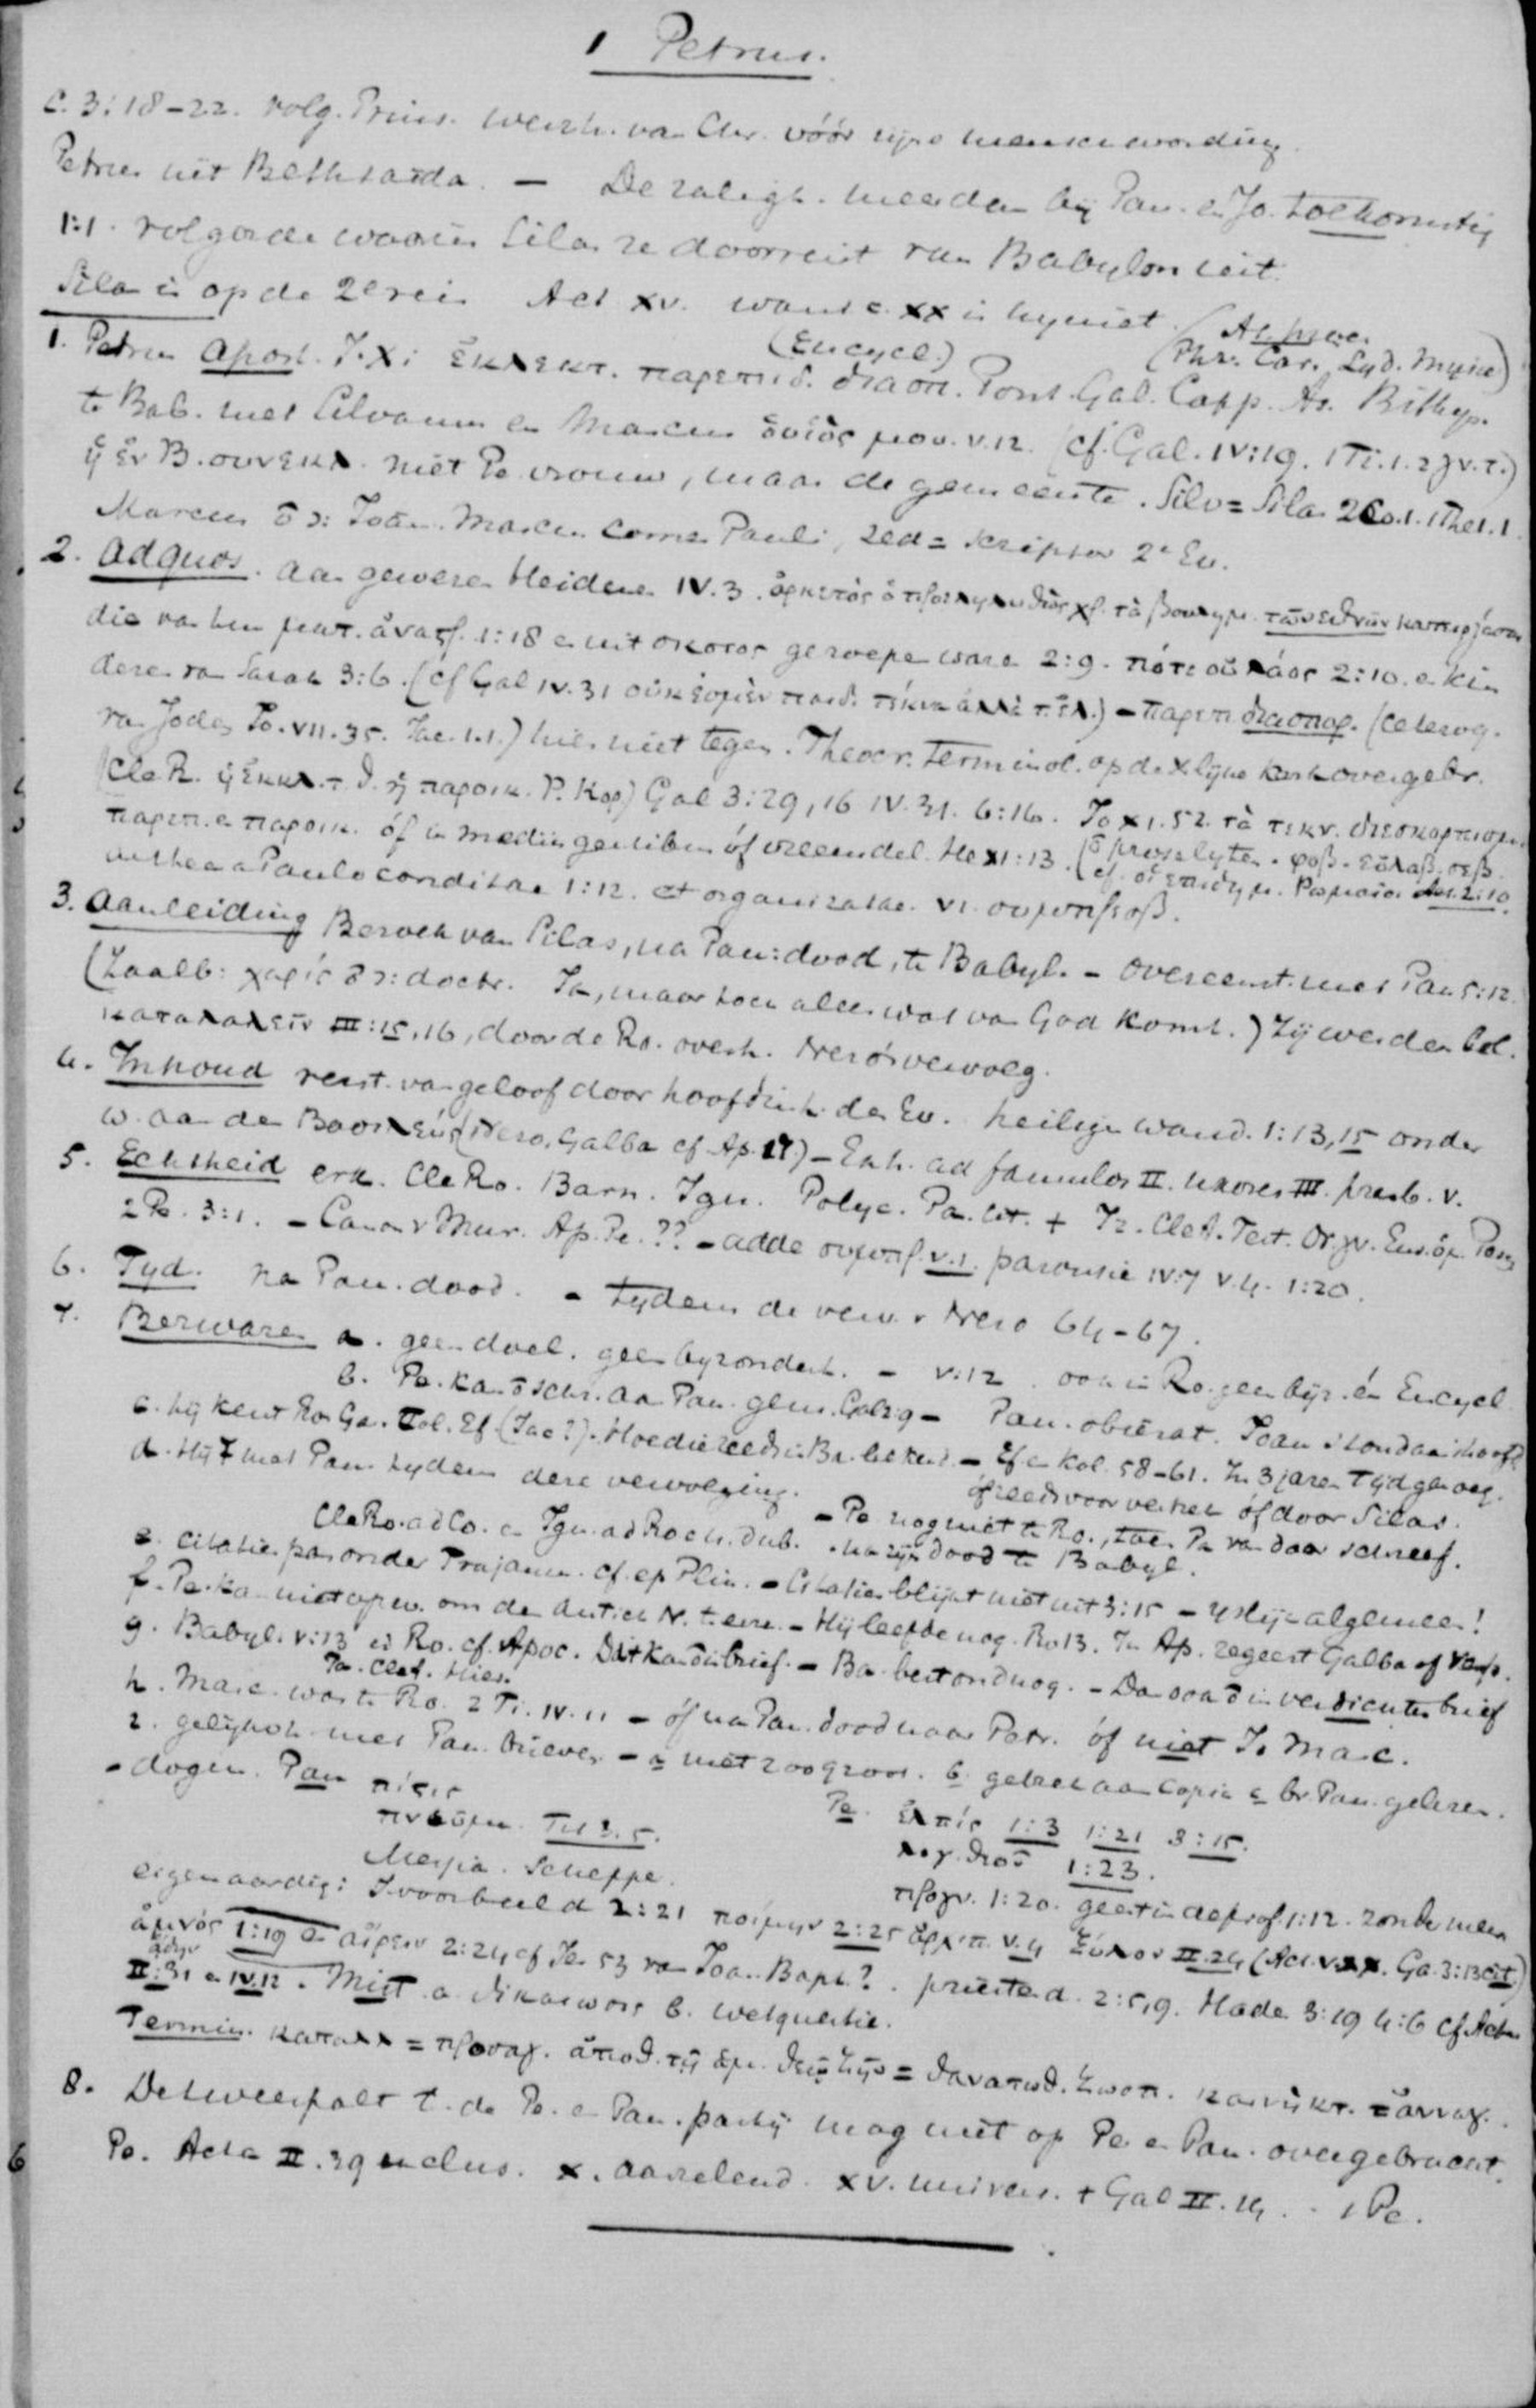 1 Petrus.
c. 3:18-22. volg. Prins. werkz. van Chr. vóór zijne menschwording.
Petrus uit Bethsaïda. — De zaligh. meerdan bij Pau. en Jo. toekomstig
1:1. volgorde waarin Silas ze doorreist van Babylon uit.
Silas is op de 2e reis Act XV. want c. XX is hij niet. (As. proc.
1. Petrus apost. J. X: ἐκλεκτ. παρεπιδ. διασπ. Pont. Gal. Capp. As. Bithyn.
(Encycl.) (Phr. Car. Lyd. Mysie)
te Bab. met Silvanus en Marcus ὁ υἱός μου. v. 12. (cf. Gal. IV:19. 1 Ti. 1. 2 γν. τ.)
ἡ ἐν B. συνεκλ. niet Pe. vrouw, maar de gemeente. Silv = Silas 2 Co. 1. 1 Thes. 1.
Marcus Joan. Marcus comes Pauli, sed = scriptor 2i Ev.
2. Ad quos. aan gewezen Heidenen IV. 3. ἀρκετὸς ὁ παρεληλυθὼς χρ. τὸ βουλημ. τῶν ἐθνῶν κατειργάσθαι
die van hun ματ. ἀναστρ. 1:18 en uit σκοτος geroepen waren 2:9. πότε οὐ λάος 2:10. en kin
deren van Sarah 3:6. (cf Gal IV. 31 οὐκ ἐσμὲν παιδ. τέκνα ἀλλὰ τ. ἐλ.) — παρεπ. διασπορ. (ceterog.
van Joden Jo. VII. 35. Jac. 1. 1.) hier niet tegen. Theocr. terminol. op de Xlijke kerk overgebr.
(Cle R. ἡ ἐκκλ. τ. θ. ἡ παροικ. Ρ. Κορ) Gal 3:29, 16 IV. 31. 6:16. Jo XI. 52. τὰ τεκν. διεσκορπισμ.
παρεπ. en παροικ. óf in mediis gentibus óf vreemdel. He XI:13. (proselyten. φοβ. εὐλαβ. σεβ.
cf. οἱ ἐπιδημ. Ρωμαῖοι Act. 2:10.
antea a Paulo conditae 1:12. et organizatae. V1. συμπρεσβ.
3. Aanleiding Bezoek van Silas, na Pau: dood, te Babyl. — overeenst. met Pau 5:12.
(Zaalb: χαρίς doctr. Ja, maar toen alles wat van God komt.) Zij werden bel.
καταλαλεῖν III:15, 16, door de Ro. overh. Nero's vervolg.
4. Inhoud verst. van geloof door hoofdinh. des Ev. heiligen wand. 1:13, 15 onder
w. aan den βασιλεύς (Nero, Galba cf. Ap. 17) — Exh. ad famulos II. uxores III. presb. V.
5. Echtheid erk. Cle Ro. Barn. Ign. Polyc. Pa. cit. + Ir. Cle A. Tert. Or. γν. Eus. ὁμ.
2 Pe. 3:1. — Canon v Mur. Ap. Pe. ?? — adde συμπρ. v. 1. parousie IV:7 V. 4. 1:20.
6. Tyd. na Pau. dood. — tydens de verv. v Nero 64-67.
7. Bezwaren a. geen doel. geen byzonderh. — v:12 ook in Ro. geen bijz. én Encycl.
b. Pe. kan schr. aan Pau. gem. Gal 2:9 — Pau. obierat. Joan stond aan 't hoofd
c. hij kent Ro. Ga. Kol. Ef. (Jac?). Hoe die reeds in Ba. bekend. — Ef en Kol. 58-61. In 3 jaren tijd genoeg.
óf reeds voor óf door Silas.
d. Hij † met Pau. tydens deze vervolging. — Pe nog niet te Ro., toen Pa. van daar schreef.
Cle Ro. ad Co. en Ign. ad Ro. dub. na zijn dood te Babyl.
e. Citatie pas onder Trajanus. cf. ep Plin. — Citatie blijkt niet uit 3:15 — algemeen!
f. Pe. kan niet opw. om den Antich N. t. eeren. — Hij leefde nog. Ro 13. In Ap. regeert Galba of Vesp.
g. Babyl. V:13 is Ro. cf. Apoc. Dat kan in brief. — Ba. bestond nog. — Dan ook in verdichten brief
Pa. Cle A. Hier.
h. Marc. was te Ro. 2 Ti. IV. 11 — óf na Pau. dood naar Petr. óf niet Jo Marc.
i. gelijkh. met Pau. brieven — a niet zoo groot. b gebrek aan copie c br. Pau. gelezen.
- dogm. Pau πίστις Pe. ἐλπίς 1:3 1:21 3:15.
πνεῦμα. Tit 3. 5. λογ. θεοῦ 1:23.
Messia. Scheppe. προγν. 1:20. geest in de prof. 1:12. zonder meer
eigenaardig: J. voorbeeld 2:21 ποίμην 2:25 ἀρχιπ. v. 4 ξύλον II. 24 (Act. V. XX. Ga. 3:13 cit)
ἀμνός 1:19 en αἴρειν 2:24 cf Jes 53 van Joan. Bapt.? priesterd. 2:5, 9. Hades 3:19 4:6 cf Act.
ᾅδην II:31 en IV. 12. Mist. a. δικαίωσις b. wetquestie.
Termin. καταλλ = προσαγ. ἀποθ. τῇ ἁμ. θεῷ ζῆν = θανατωθ. ζωοπ. καινὴ κτ. = ἀναγ.
8. De tweespalt t. de Pe. en Pau. partij mag niet op Pe. en Pau. overgebracht.
Pe. Acta II. 39 inclus. X. aarzelend. XV. univers. + Gal II. 14. — 1 Pe.
6